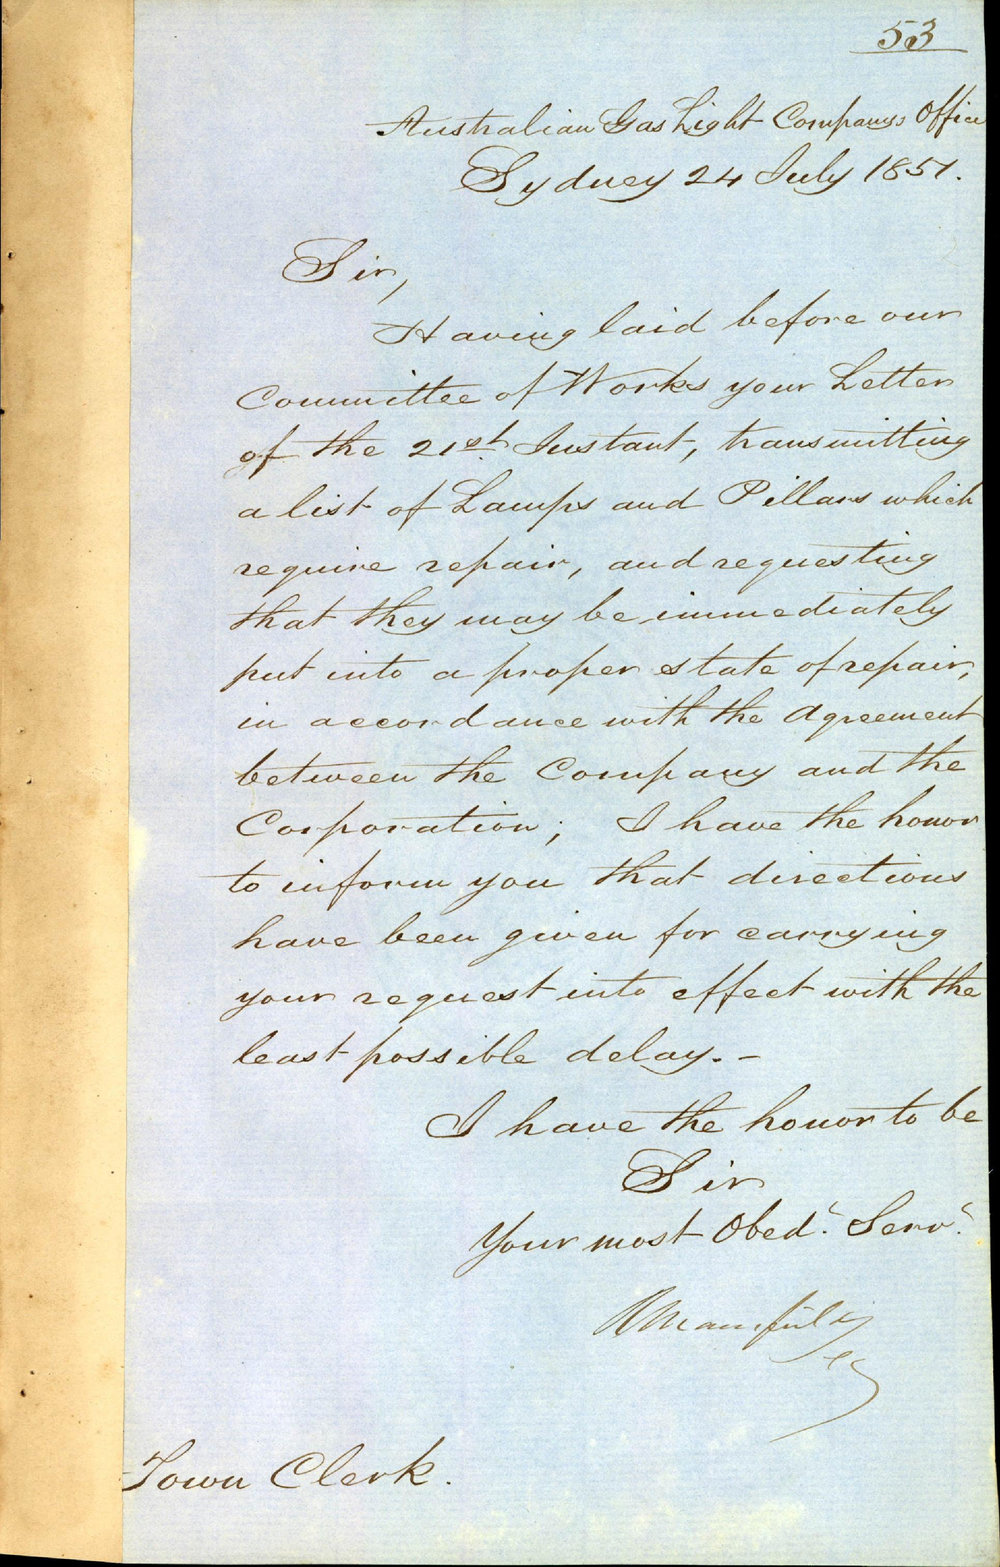 53
Australian Gas Light Company's Office
Sydney 24 July 1851.
Sir,
Having laid before our
Committee of Works your Letter
of the 21st Instant, transmitting
a list of Lamps and Pillars which
require repair, and requesting
that they may be immediately
put into a proper state of repair,
in accordance with the Agreement
between the Company and the
Corporation; I have the honor
to inform you that directions
have been given for carrying
your request into effect with the
least possible delay. -
I have the honor to be
Sir
Your most Obedt. Servt.
Town Clerk.